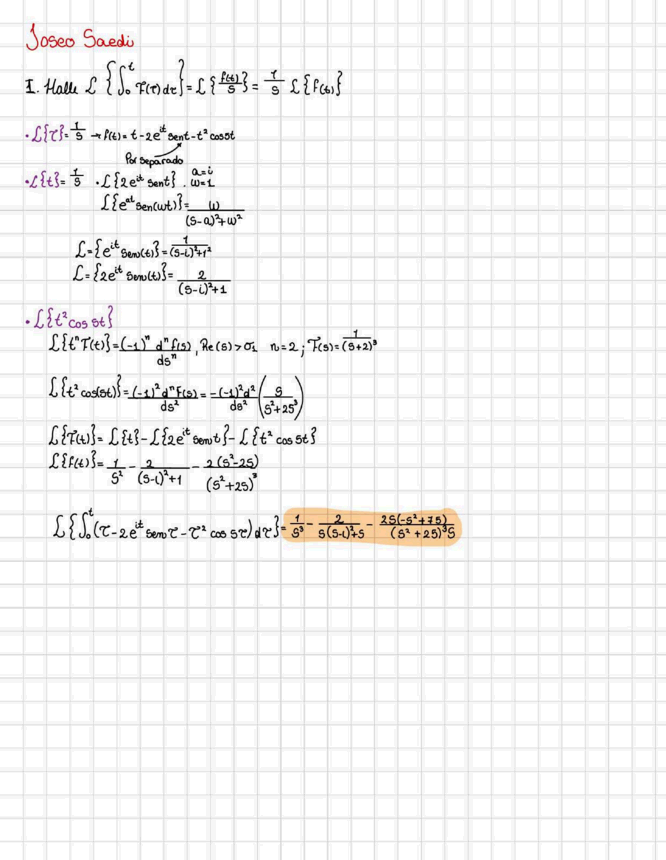 Joseo Saedi
I. Halle ℒ {∫₀ᵗ F(τ)dτ} = ℒ {f(t)/s} = 1/s ℒ{F(t)}
• ℒ{τ} = 1/s → f(t) = t - 2e^it sent - t² cos5t
Por separado
• ℒ{t} = 1/s • ℒ{2e^it sent} . a=i
ω=1
ℒ{e^at sen(ωt)} = ω/((s-a)²+ω²)
ℒ = {e^it sen(t)} = 1/((s-i)²+1²)
ℒ = {2e^it sen(t)} = 2/((s-i)²+1)
• ℒ{t² cos 5t}
ℒ{tⁿ F(t)} = (-1)ⁿ dⁿ f(s)/dsⁿ , Re(s) > σ₁ n=2 ; F(s) = 1/(s+2)³
ℒ{t² cos(5t)} = (-1)² dⁿ F(s)/ds² = -(-1)² d²/ds² (s/(s²+25³))
ℒ{F(t)} = ℒ{t} - ℒ{2e^it sen t} - ℒ{t² cos 5t}
ℒ{f(t)} = 1/s² - 2/((s-i)²+1) - 2(s²-25)/(s²+25)³
ℒ{∫₀ᵗ (τ - 2e^it sen τ - τ² cos 5τ) dτ} = 1/s³ - 2/(s(s-i)²+s) - 2s(-s²+75)/((s²+25)³s)